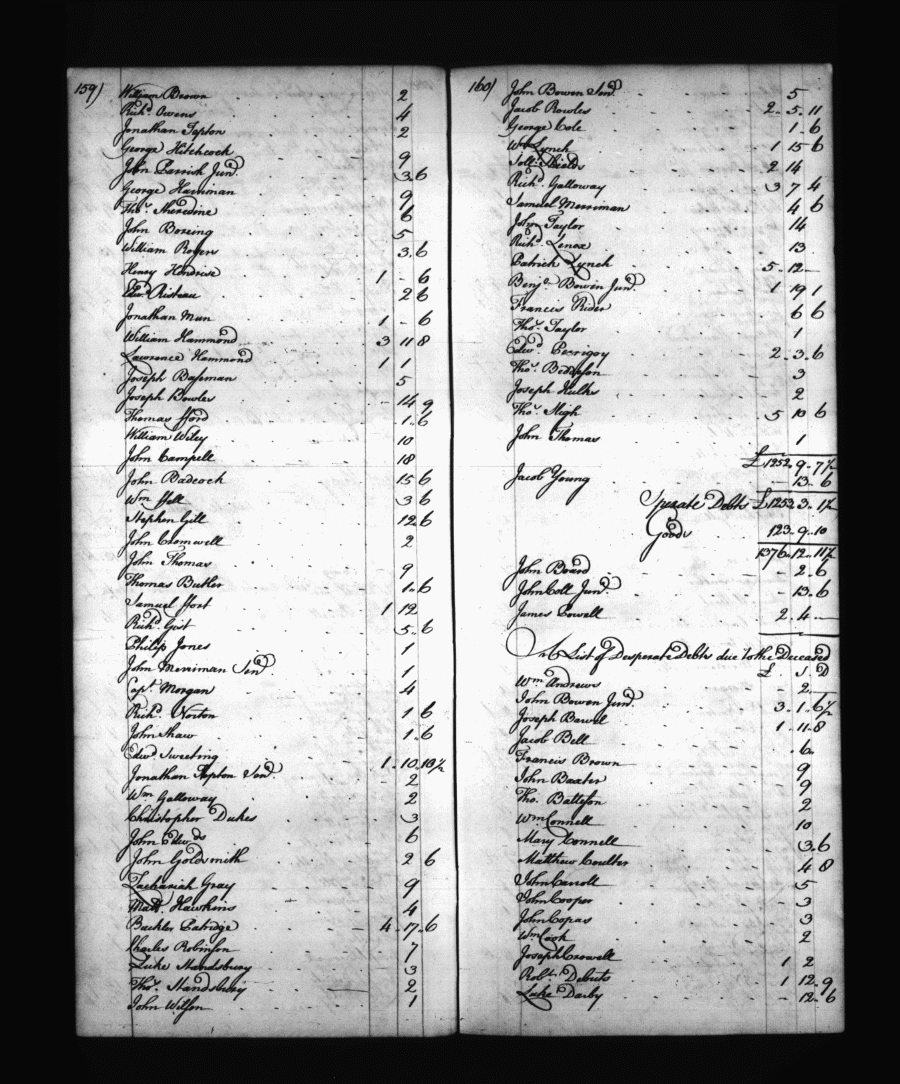 159)
William Brown 2
Richd. Owens 4
Jonathan Tipton 2
George Hitchcock
John Parrish Junr. 9
George Harriman 3.6
Thos. Sheredine 9
John Boreing 6
William Rogers 5
Henry Hendrise 3.6
Edwd. Risteau 1 - 6
Jonathan Mun 2 6
William Hammond 1 - 6
Lawrence Hammond 3 11 8
Joseph Bafeman 1 1
Joseph Bowles 5
Thomas fford 14 9
William Wiley 1.6
John Campell 10
John Badcock 18
Wm. Hell 15 6
Stephen Gill 3 6
John Cromwell 12 6
John Thomas 2
Thomas Butler 9
Samuel ffort 1.6
Richd. Gist 1 12
Philip Jones 5.6
John Merriman Senr. 1
Capt. Morgan 1
Richd. Norton 4
John Shaw 1 6
Edwd. Sweeting 1.6
Jonathan Tipton Senr. 1.10.10½
Wm. Galloway 2
Christopher Dukes 2
John Edwds 3
John Goldsmith 6
Zachariah Gray 2 6
Matt. Hawkins 9
Buckler Patridge 4
Charles Robinson 4.17.6
Luke Standsbury 7
Thos. Standsbury 3
John Wilson 2
1
160)
John Bowen Senr. 5
Jacob Rowles 2.5.11
George Cole 1.6
Wm. Lynch 1 15 6
Solo. Shields 2 14
Richd. Galloway 3 7 4
Samuel Merriman 4 6
John Taylor 14
Richd. Lenox 13
Patrick Lynch 5.12
Benja. Bowen Junr. 1 19 1
Francis Rider 6 6
Thos. Taylor 1
Edwd. Perrigoy 2.3.6
Thos. Beddeson 3
Joseph Hulks 2
Thos. High 5 10 6
John Thomas 1
£1252.9.7½
Jacob Young - 13.6
Sperate Debts £1253.3.1½
Goods 123.9.10
1376.12.11½
John Board - 2.6
John Coll Junr. - 13.6
James Powell 2.4.
A List of Desperate Debts due to the Deceased
£ S D
Wm. Andrews - 2.
John Bowen Junr. 3.1.6½
Joseph Barvel 1.11.8
Jacob Bell .6.
Francis Brown 9
John Baxter 9
Tho. Batteson 2
Wm. Connell 10
Mary Connell 3.6
Matthew Coulter 4 8
John Carroll 5
John Cooper 3
John Copas 3
Wm. Cook 2
Joseph Crowell 1 2
Robt. Debuts 1 12.9
Luke Darby - 12.6